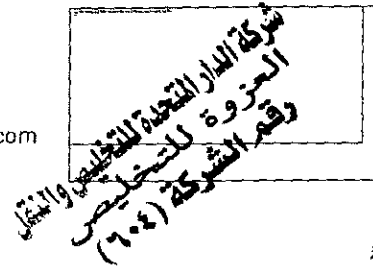 شركة الدار المتحدة للتخليص والنقل
العزوة للتخليص
رقم الشركة (٦٠٤)
com